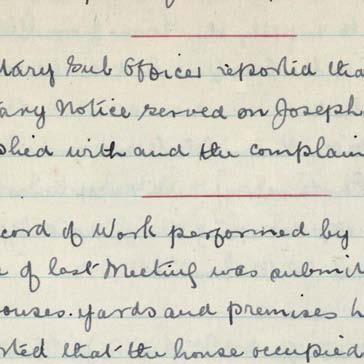 tary Sub Officer reported tha
tary Notice served on Joseph
plied with and the complain
cord of Work performed by
e of last Meeting was submit
ouses. yards and premises h
rted that the house occupied